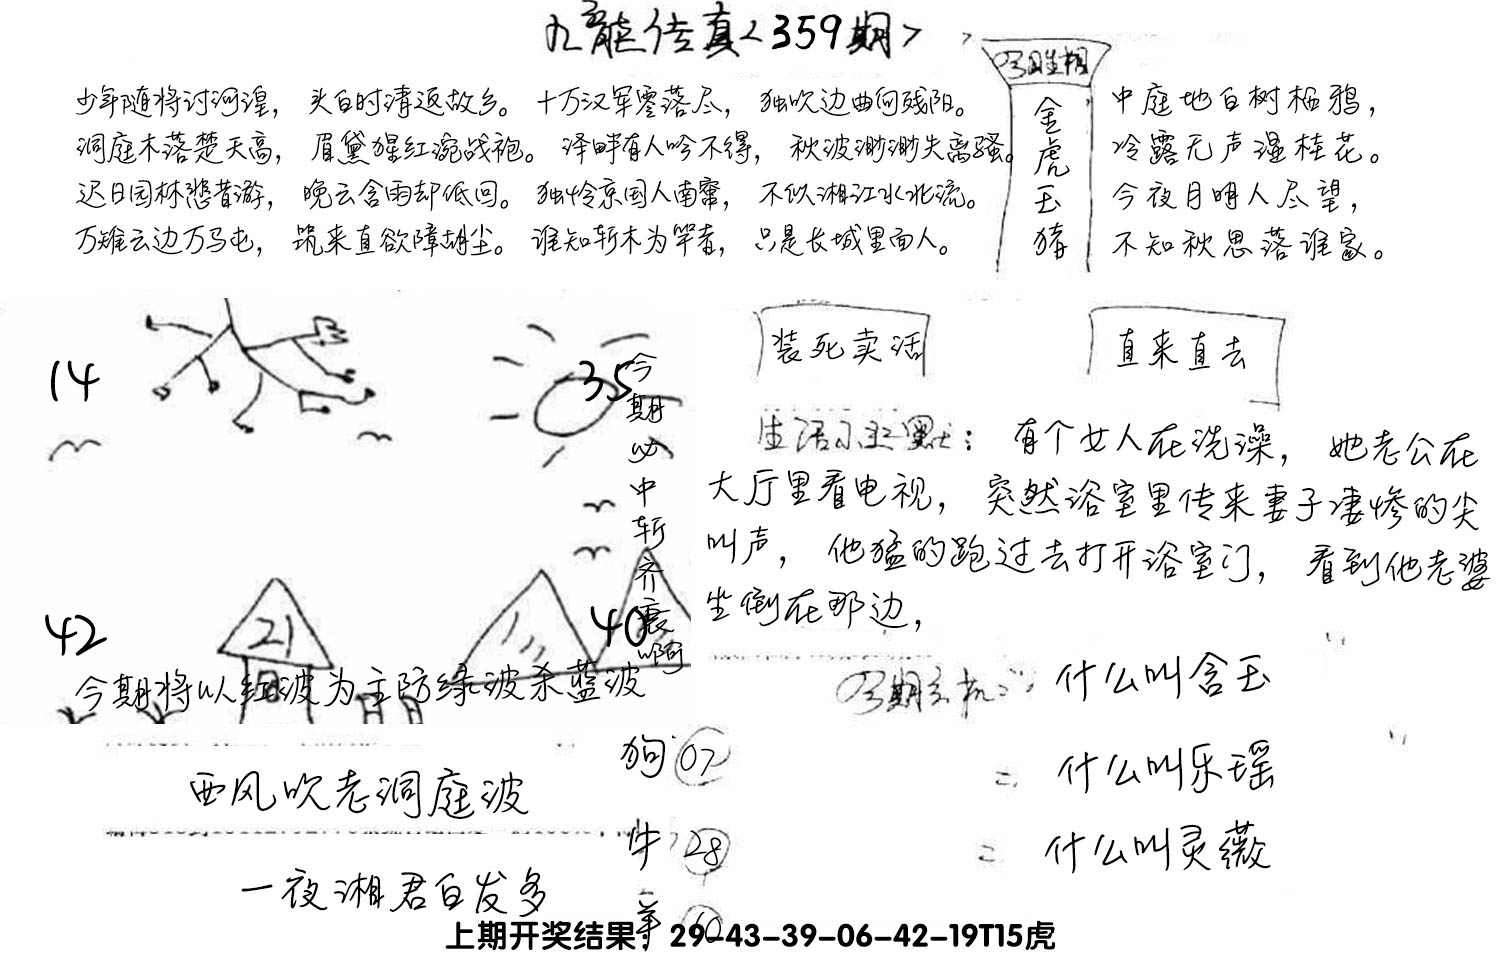 九龙传真<359期>
少年随将讨河湟，头白时清返故乡。十万汉军零落尽，独吹边曲向残阳。
洞庭木落楚天高，眉黛猩红涴战袍。泽畔有人吟不得，秋波渺渺失离骚。
迟日园林悲昔游，晚云含雨却低回。独怜京国人南窜，不似湘江水北流。
万雉云边万马屯，筑来直欲障胡尘。谁知斩木为竿者，只是长城里面人。
金虎玉猪
中庭地白树栖鸦，
冷露无声湿桂花。
今夜月明人尽望，
不知秋思落谁家。
14
35
42
21
40
今期必中斩齐衰啊
今期将以红波为主防绿波杀蓝波
装死卖活
直来直去
生活小幽默：有个女人在洗澡，她老公在
大厅里看电视，突然浴室里传来妻子凄惨的尖
叫声，他猛的跑过去打开浴室门，看到他老婆
坐倒在那边，
什么叫含玉
二 什么叫乐瑶
二 什么叫灵薇
西风吹老洞庭波
一夜湘君白发多
狗 07
牛 28
羊
上期开奖结果：29-43-39-06-42-19T15虎